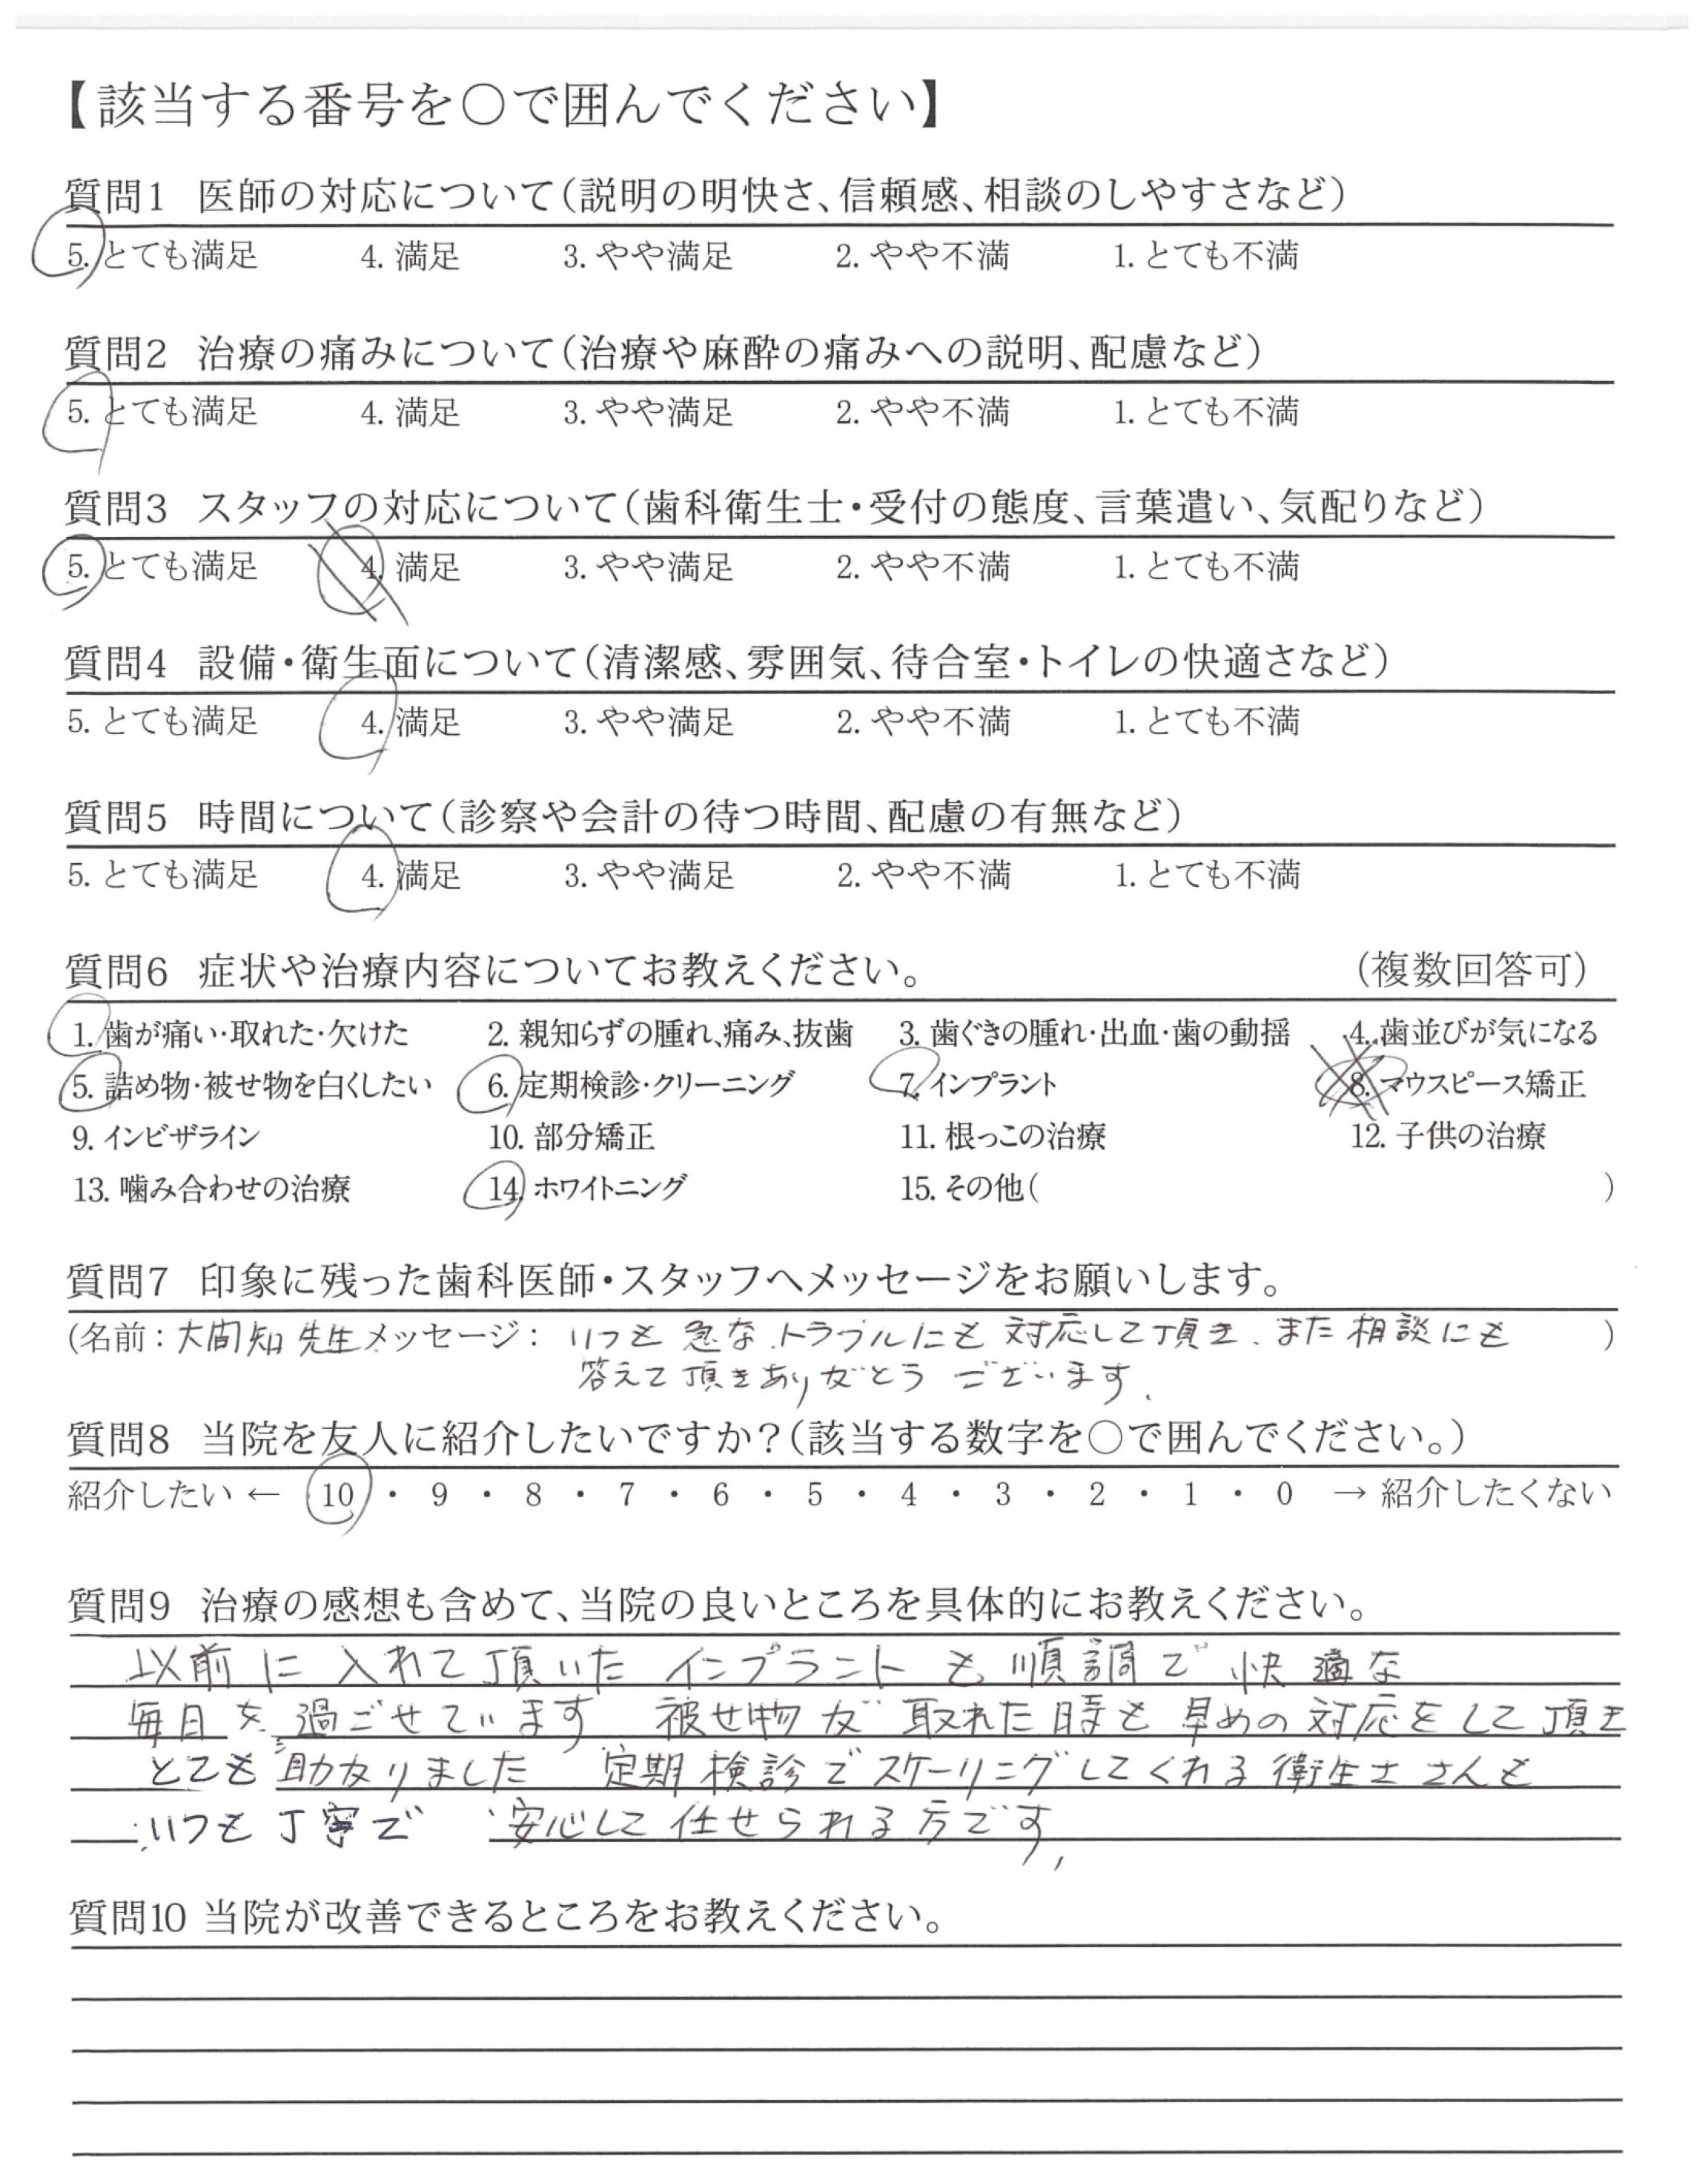 【該当する番号を○で囲んでください】
質問1 医師の対応について(説明の明快さ、信頼感、相談のしやすさなど)
5. とても満足 4. 満足 3. やや満足 2. やや不満 1. とても不満
質問2 治療の痛みについて(治療や麻酔の痛みへの説明、配慮など)
5. とても満足 4. 満足 3. やや満足 2. やや不満 1. とても不満
質問3 スタッフの対応について(歯科衛生士・受付の態度、言葉遣い、気配りなど)
5. とても満足 4. 満足 3. やや満足 2. やや不満 1. とても不満
質問4 設備・衛生面について(清潔感、雰囲気、待合室・トイレの快適さなど)
5. とても満足 4. 満足 3. やや満足 2. やや不満 1. とても不満
質問5 時間について(診察や会計の待つ時間、配慮の有無など)
5. とても満足 4. 満足 3. やや満足 2. やや不満 1. とても不満
質問6 症状や治療内容についてお教えください。 (複数回答可)
1. 歯が痛い・取れた・欠けた 2. 親知らずの腫れ、痛み、抜歯 3. 歯ぐきの腫れ・出血・歯の動揺 4. 歯並びが気になる
5. 詰め物・被せ物を白くしたい 6. 定期検診・クリーニング 7. インプラント 8. マウスピース矯正
9. インビザライン 10. 部分矯正 11. 根っこの治療 12. 子供の治療
13. 噛み合わせの治療 14. ホワイトニング 15. その他( )
質問7 印象に残った歯科医師・スタッフへメッセージをお願いします。
(名前:大間知先生 メッセージ: いつも急なトラブルにも対応して頂き、また相談にも )
答えて頂きありがとうございます。
質問8 当院を友人に紹介したいですか?(該当する数字を○で囲んでください。)
紹介したい ← 10 ・ 9 ・ 8 ・ 7 ・ 6 ・ 5 ・ 4 ・ 3 ・ 2 ・ 1 ・ 0 → 紹介したくない
質問9 治療の感想も含めて、当院の良いところを具体的にお教えください。
以前に入れて頂いたインプラントも順調で快適な
毎日を過ごせています 被せ物が取れた時も早めの対応をして頂き
とても助かりました 定期検診でスケーリングしてくれる衛生士さんも
いつも丁寧で 安心して任せられる方です。
質問10 当院が改善できるところをお教えください。